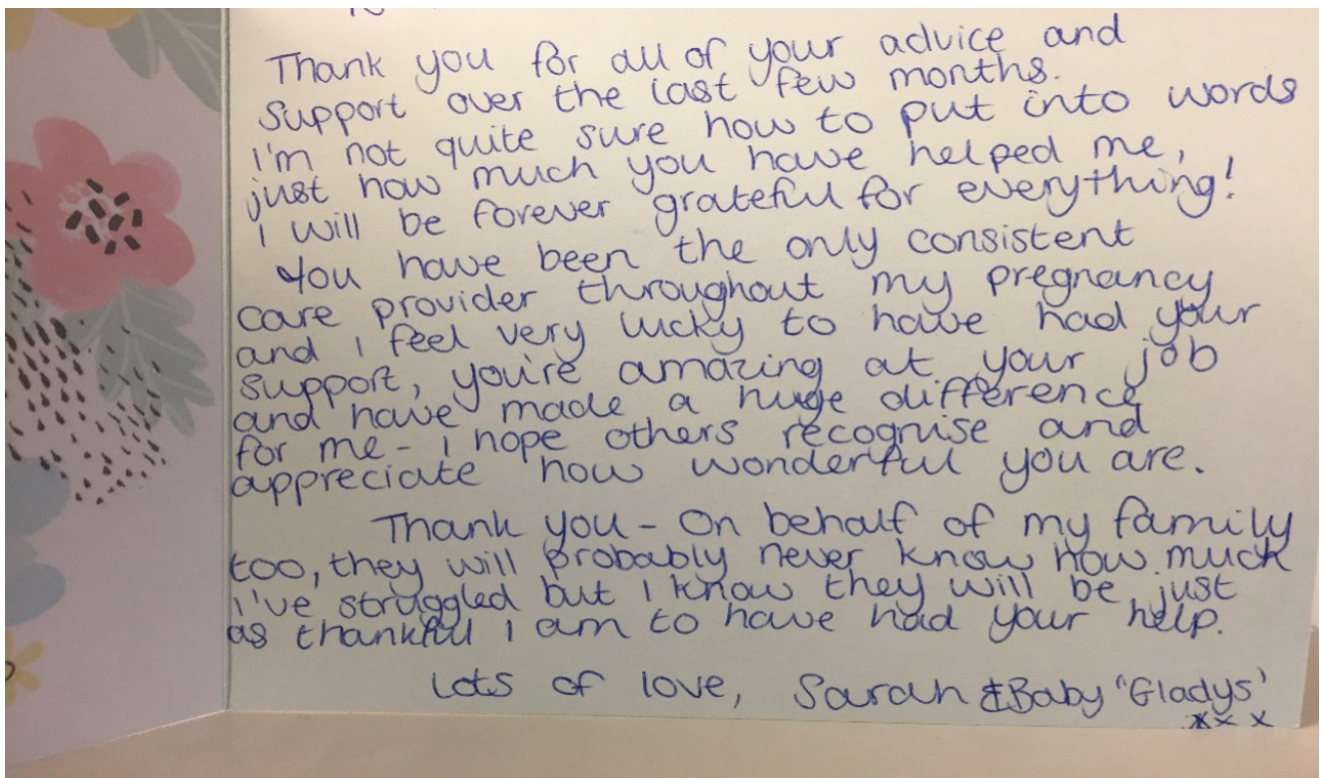 Thank you for all of your advice and
support over the last few months.
I'm not quite sure how to put into words
just how much you have helped me,
I will be forever grateful for everything!
You have been the only consistent
care provider throughout my pregnancy
and I feel very lucky to have had your
support, you're amazing at your job
and have made a huge difference
for me - I hope others recognise and
appreciate how wonderful you are.
Thank you - On behalf of my family
too, they will probably never know how much
I've struggled but I know they will be just
as thankful I am to have had your help.
Lots of love, Sarah & Baby 'Gladys'
xxx